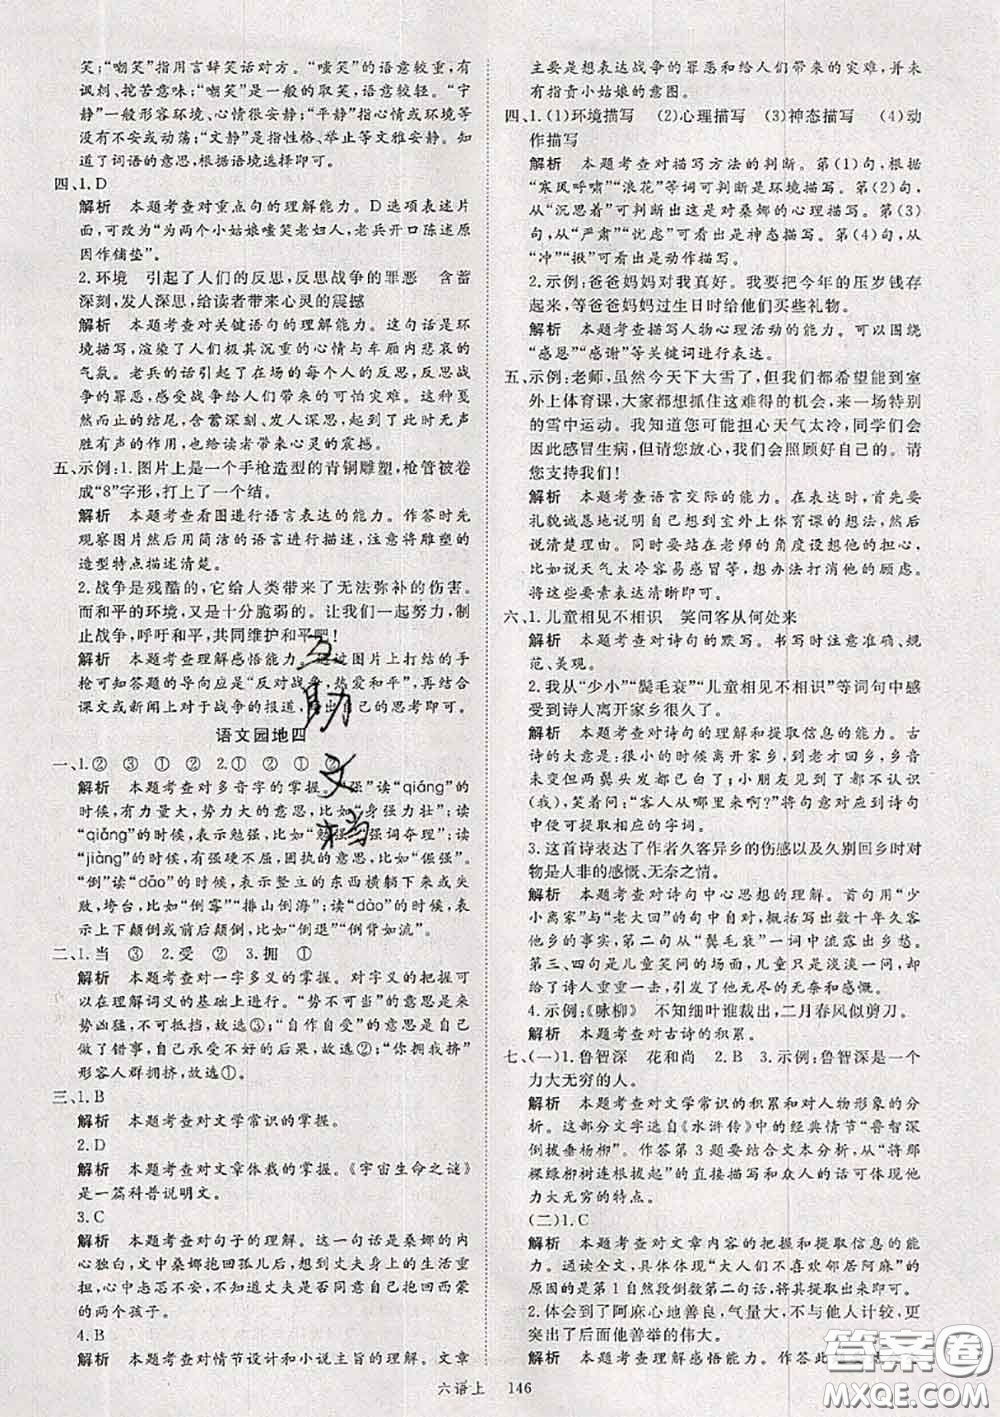 笑;“嘲笑”指用言辞笑话对方。“嗤笑”的语意较重,有
讽刺、挖苦意味;“嘲笑”是一般的取笑,语意较轻。“宁
静”一般形容环境、心情很安静;“平静”指心情、环境等
没有不安或动荡;“文静”是指性格、举止等文雅安静。知
道了词语的意思,根据语境选择即可。
四、1. D
解析 本题考查对重点句的理解能力。D选项表述片
面,可改为“为两个小姑娘嗤笑老妇人,老兵开口陈述原
因作铺垫”。
2. 环境 引起了人们的反思,反思战争的罪恶 含蓄
深刻,发人深思,给读者带来心灵的震撼
解析 本题考查对关键语句的理解能力。这句话是环
境描写,渲染了人们极其沉重的心情与车厢内悲哀的
气氛。老兵的话引起了在场的每个人的反思,反思战
争的罪恶,感受战争给人们带来的可怕灾难。这种戛
然而止的结尾,含蓄深刻、发人深思,起到了此时无声
胜有声的作用,也给读者带来心灵的震撼。
五、示例:1. 图片上是一个手枪造型的青铜雕塑,枪管被卷
成“8”字形,打上了一个结。
解析 本题考查看图进行语言表达的能力。作答时先
观察图片然后用简洁的语言进行描述,注意将雕塑的
造型特点描述清楚。
2. 战争是残酷的,它给人类带来了无法弥补的伤害。
而和平的环境,又是十分脆弱的。让我们一起努力,制
止战争,呼吁和平,共同维护和平吧!
解析 本题考查理解感悟能力。通过图片上打结的手
枪可知答题的导向应是“反对战争,热爱和平”,再结合
课文或新闻上对于战争的报道,写出自己的思考即可。
语文园地四
一、1. ② ③ ① ② 2. ① ② ① ②
解析 本题考查对多音字的掌握。“强”读“qiáng”的
时候,有力量大,势力大的意思,比如“身强力壮”;读
“qiǎng”的时候,表示勉强,比如“勉强”“强词夺理”;读
“jiàng”的时候,有强硬不屈,固执的意思,比如“倔强”。
“倒”读“dǎo”的时候,表示竖立的东西横躺下来或失
败,垮台,比如“倒霉”“排山倒海”;读“dào”的时候,表示
上下颠倒或前后颠倒,比如“倒退”“倒背如流”。
二、1. 当 ③ 2. 受 ② 3. 拥 ①
解析 本题考查对一字多义的掌握。对字义的把握可
以在理解词义的基础上进行。“势不可当”的意思是来
势凶猛,不可抵挡,故选③;“自作自受”的意思是自己
做了错事,自己承受不好的后果,故选②;“你拥我挤”
形容人群拥挤,故选①。
三、1. B
解析 本题考查对文学常识的掌握。
2. D
解析 本题考查对文章体裁的掌握。《宇宙生命之谜》
是一篇科普说明文。
3. C
解析 本题考查对句子的理解。这一句话是桑娜的内
心独白,文中桑娜抱回孤儿后,想到丈夫身上的生活重
担,心中忐忑不安,不知道丈夫是否同意自己抱回西蒙
的两个孩子。
4. B
解析 本题考查对情节设计和小说主旨的理解。文章
主要是想表达战争的罪恶和给人们带来的灾难,并未
有指责小姑娘的意图。
四、1. (1)环境描写 (2)心理描写 (3)神态描写 (4)动
作描写
解析 本题考查对描写方法的判断。第(1)句,根据
“寒风呼啸”“浪花”等词可判断是环境描写。第(2)句,
从“沉思着”可判断出这是对桑娜的心理描写。第(3)
句,从“严肃”“忧虑”可看出是神态描写。第(4)句,从
“冲”“揪”可看出是动作描写。
2. 示例:爸爸妈妈对我真好。我要把今年的压岁钱存
起来,等爸爸妈妈过生日时给他们买些礼物。
解析 本题考查描写人物心理活动的能力。可以围绕
“感恩”“感谢”等关键词进行表达。
五、示例:老师,虽然今天下大雪了,但我们都希望能到室
外上体育课,大家都想抓住这难得的机会,来一场特别
的雪中运动。我知道您可能担心天气太冷,同学们会
因此感冒生病,但请您放心,我们会照顾好自己的。请
您支持我们!
解析 本题考查语言交际的能力。表达时,首先要
礼貌诚恳地说明自己想到室外上体育课的想法,然后
说出原因。同时要站在老师的角度设想他的担心,
比如说天气太冷容易感冒等,并想办法打消他的顾虑。
将这些要素表达清晰即可。
六、1. 儿童相见不相识 笑问客从何处来
解析 本题考查对诗句的默写。书写时注意准确、规
范、美观。
2. 我从“少小”“鬓毛衰”“儿童相见不相识”等词句中感
受到诗人离开家乡很久了。
解析 本题考查对诗句的理解和提取信息的能力。古
诗的大意是很小的时候离开家乡,到老才回家,乡音
未变但两鬓头发都已白了;小朋友见到了都不认识
(我),笑着问:“客人从哪里来啊?”将句意对应到诗句
中便可提取相应的字词。
3. 这首诗表达了作者久客异乡的伤感以及久别回乡时对
物是人非的感慨、无奈之情。
解析 本题考查对诗句中心思想的理解。首句用“少
小离家”与“老大回”的句中自对,概括写出数十年久客
他乡的事实,第二句从“鬓毛衰”一词中流露出乡愁。
第三、四句是儿童笑问的场面,儿童只是淡淡一问,却
给了诗人重重一击,引发了他无尽的无奈和感慨。
4. 示例:《咏柳》 不知细叶谁裁出,二月春风似剪刀。
解析 本题考查对古诗的积累。
七、(一)1. 鲁智深 花和尚 2. B 3. 示例:鲁智深是一个
力大无穷的人。
解析 本题考查对文学常识的积累和对人物形象的分
析。这部分文字选自《水浒传》中的经典情节“鲁智深
倒拔垂杨柳”。作答第3题要结合文本分析,从“将那
棵绿柳树连根拔起”的直接描写和众人的话可体现他
力大无穷的特点。
(二)1. C
解析 本题考查对文章内容的把握和提取信息的能
力。通读全文,具体体现“大人们不喜欢邻居阿麻”的
原因的是第1自然段倒数第二句话,将其提取出来即可。
2. 体会到了阿麻心地善良,气量大,不与他人计较,更
突出了后面他善举的伟大。
解析 本题考查理解感悟能力。作答
互助文档
答案圈
MXQE.COM
六语上 146